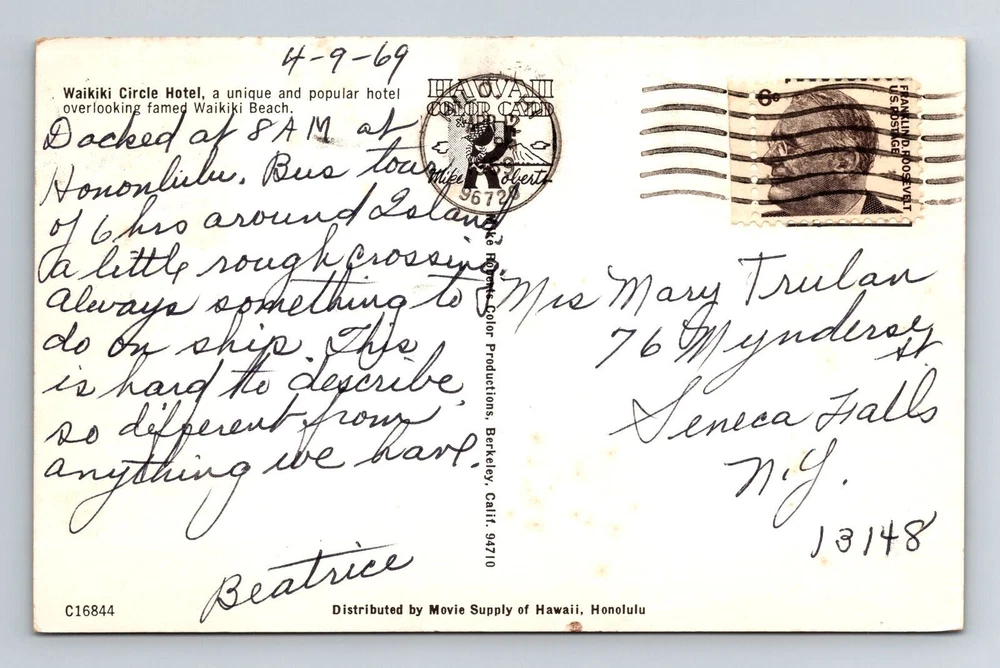 4-9-69
Waikiki Circle Hotel, a unique and popular hotel
overlooking famed Waikiki Beach.
Docked at 8 AM at
Hononlulu. Bus tour
of 6 hrs around Island
a little rough crossing.
Always something to
do on ship. This
is hard to describe
so different from
anything we have.
Beatrice
C16844
HAWAII
COLOR CARD
Mike Roberts
Mike Roberts Color Productions, Berkeley, Calif. 94710
Distributed by Movie Supply of Hawaii, Honolulu
6c
FRANKLIN D. ROOSEVELT
U.S. POSTAGE
Mrs Mary Trulan
76 Mynderse
St
Seneca Falls
N.Y.
13148